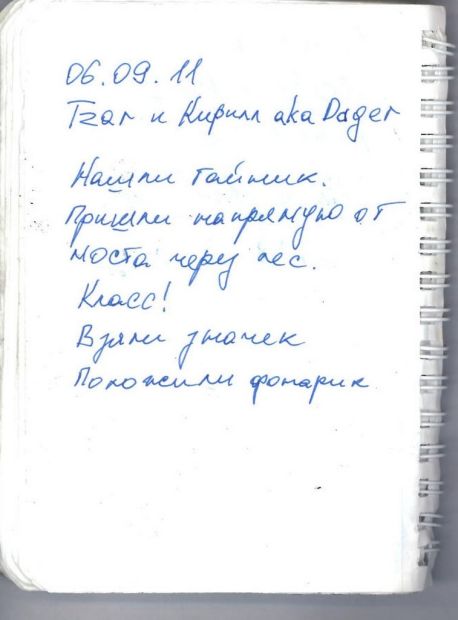 06.09.11
Tzar и Кирилл aka Dager
Нашли тайник.
Пришли напрямую от
моста через лес.
Класс!
Взяли значек
Положили фонарик